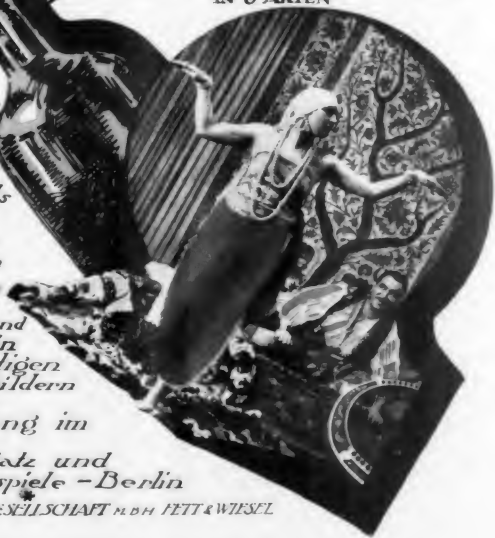 IN 6 AKTEN
und
in
digen
bildern
ng im
latz und
spiele - Berlin
ESELLSCHAFT M.B.H FETT & WIESEL